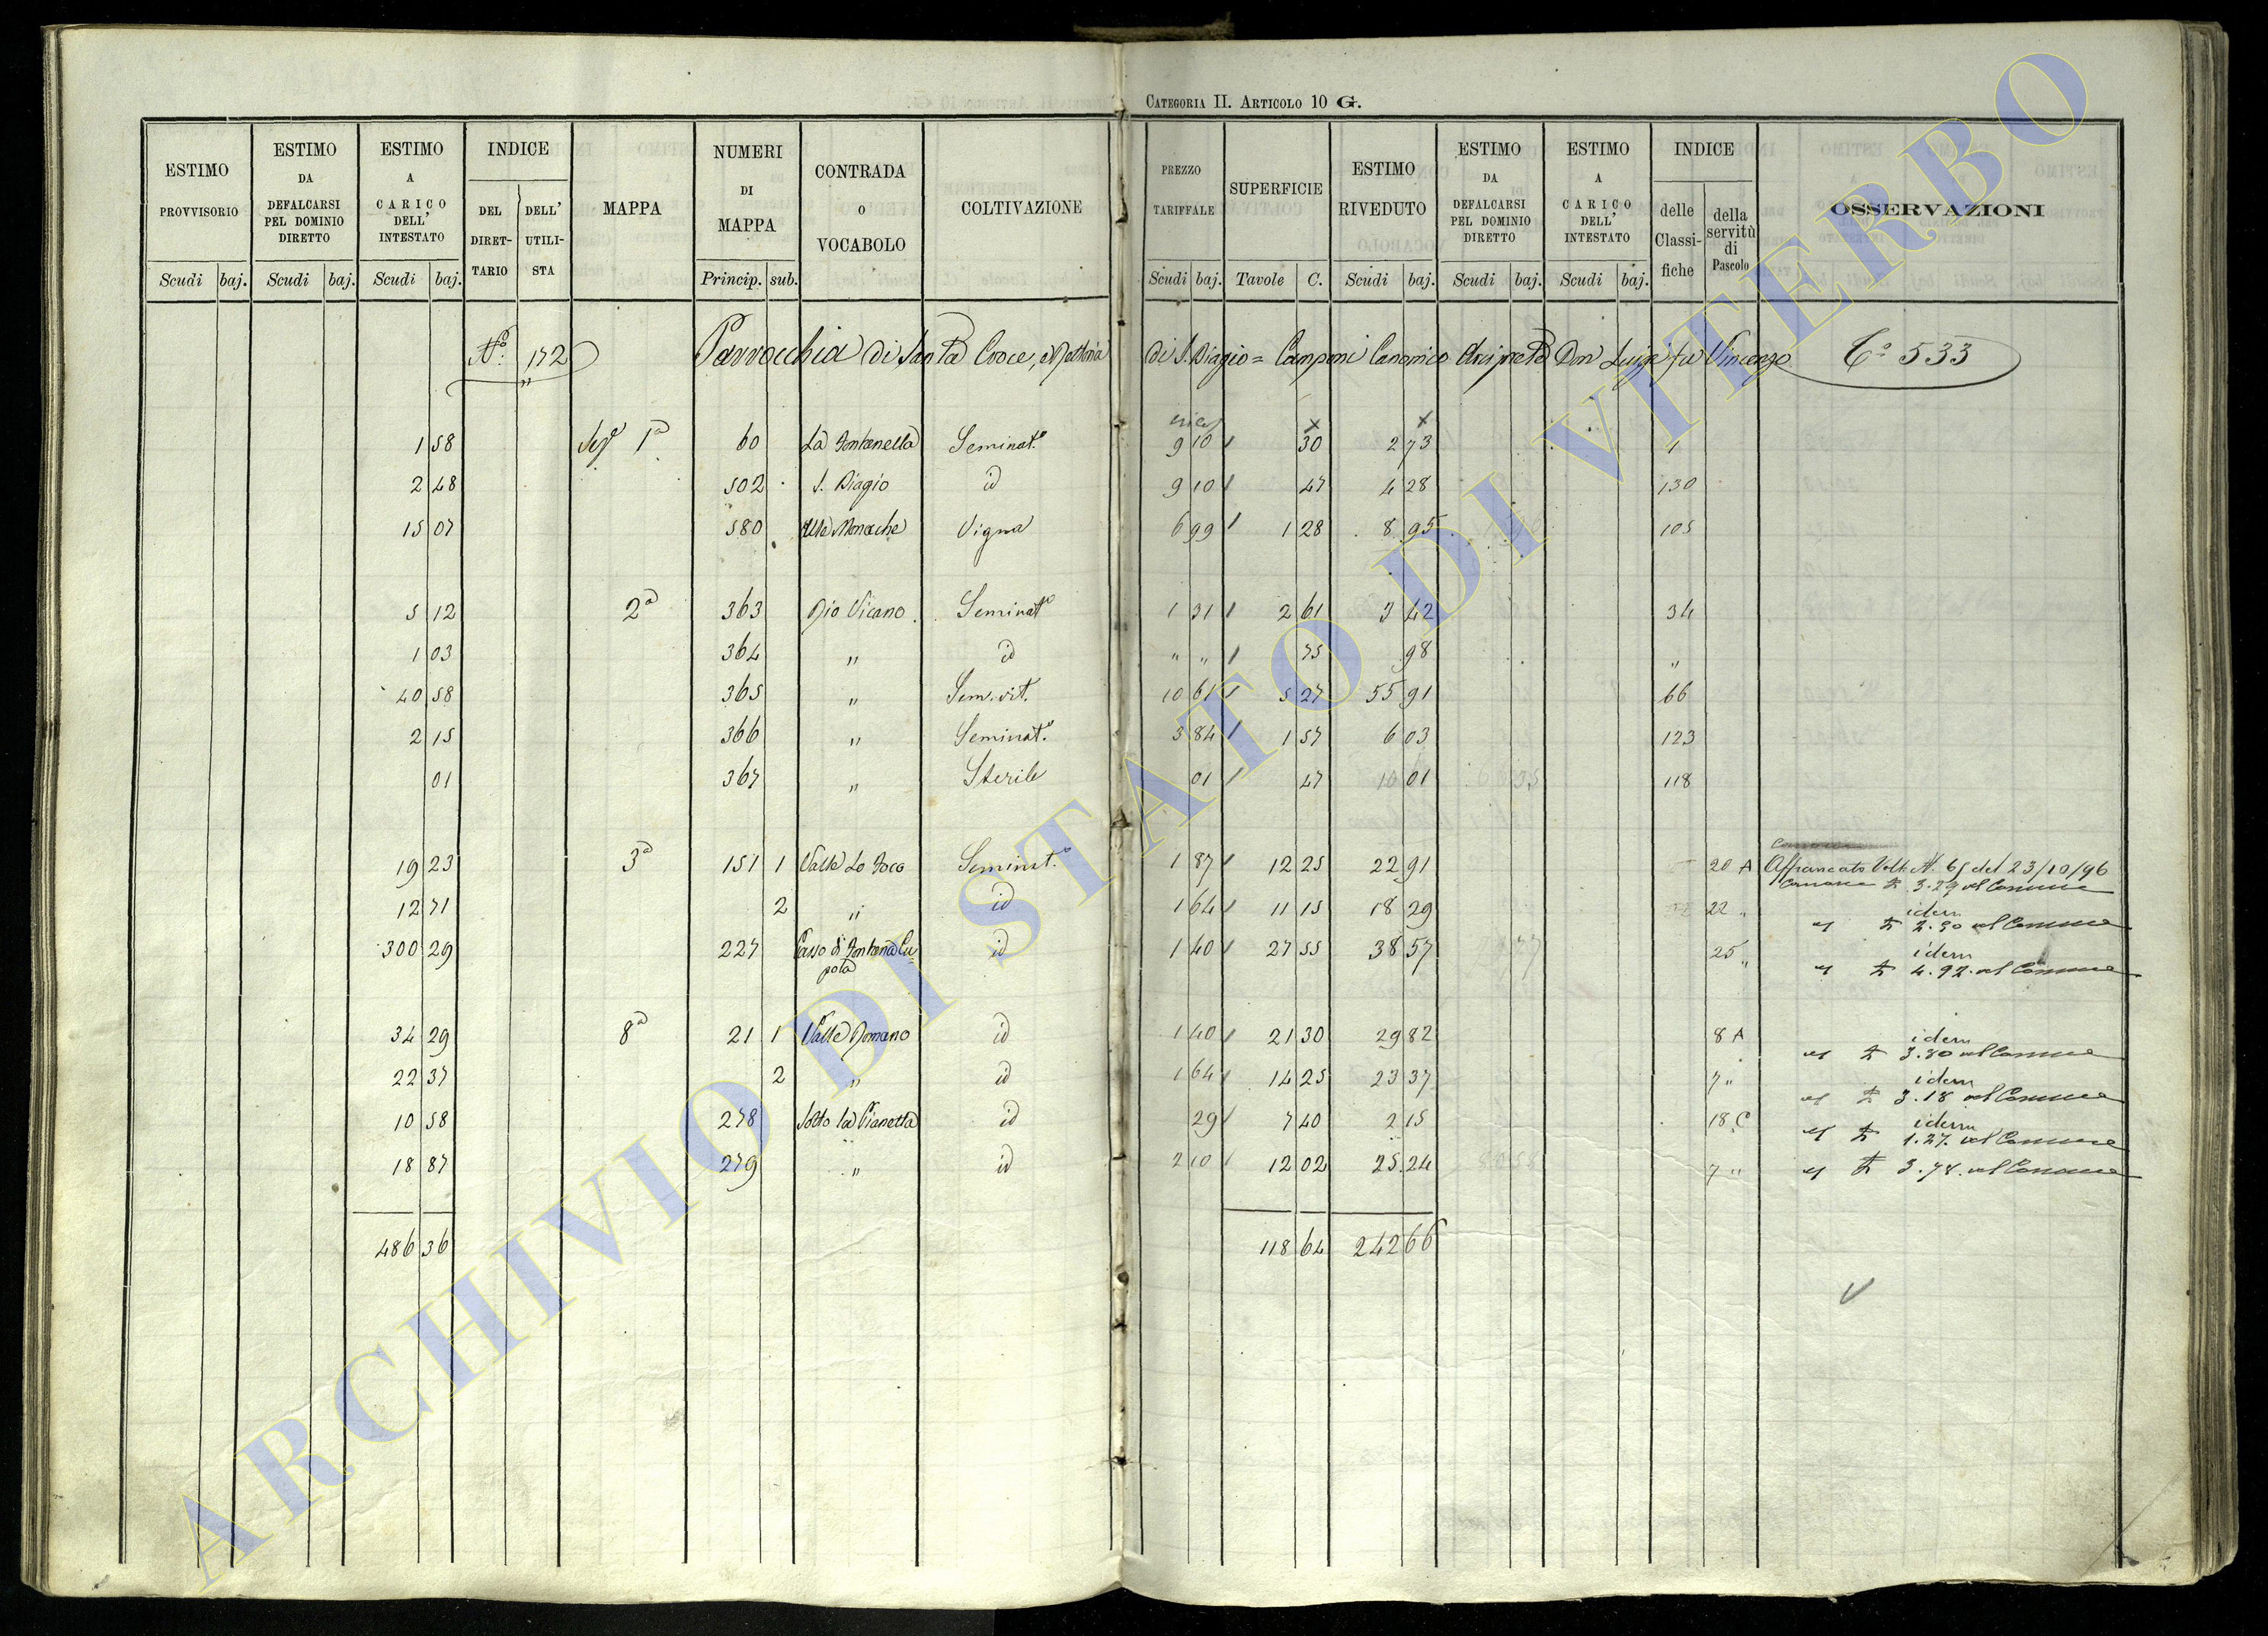 CATEGORIA II. ARTICOLO 10 G.
ESTIMO PROVVISORIO Scudi baj. ESTIMO DA DEFALCARSI PEL DOMINIO DIRETTO Scudi baj. ESTIMO A CARICO DELL' INTESTATO Scudi baj. INDICE DEL DIRETTARIO DELL' UTILISTA MAPPA NUMERI DI MAPPA Princip. sub. CONTRADA O VOCABOLO COLTIVAZIONE PREZZO TARIFFALE Scudi baj. SUPERFICIE Tavole C. ESTIMO RIVEDUTO Scudi baj. ESTIMO DA DEFALCARSI PEL DOMINIO DIRETTO Scudi baj. ESTIMO A CARICO DELL' INTESTATO Scudi baj. INDICE delle Classifiche della servitù di Pascolo OSSERVAZIONI
N.° 172 Parrocchia di Santa Croce, e Rettoria di S. Biagio = Camponi Canonico Arciprete Don Luigi fu Vincenzo C.° 533
1 58 Sez.e 1a 60 La Fontanella Seminat.o 9 10 30 2 73 1
2 48 502 S. Biagio id 9 10 47 4 28 130
15 07 580 Alle Monache Vigna 6 99 1 28 8 95 105
5 12 2a 363 Rio Vicano Seminat.o 1 31 2 61 3 42 34
1 03 364 " id " " 75 98 "
40 58 365 " Sem. vit. 10 61 5 27 55 91 66
2 15 366 " Seminat.o 3 84 1 57 6 03 123
01 367 " Sterile 01 47 01 118
19 23 3a 151 1 Valle Lo Foco Seminat.o 1 87 12 25 22 91 20 A Affrancato Volt. N. 65 del 23/10/96
Canone £ 3.29 al Comune
12 71 2 " id 1 64 11 15 18 29 22 " idem
" £ 2.30 al Comune
300 29 227 Passo di Fontana Cupota id 1 40 27 55 38 57 25 " idem
" £ 4.92 al Comune
34 29 8a 21 1 Valle Romano id 1 40 21 30 29 82 8 A idem
" £ 3.80 al Comune
22 37 2 " id 1 64 14 25 23 37 7 " idem
" £ 3.18 al Comune
10 58 278 Sotto la Pianetta id 29 7 40 2 15 18 C idem
" £ 1.27 al Comune
18 87 279 " id 2 10 12 02 25 24 7 " " £ 3.78 al Comune
486 36 118 64 242 66
ARCHIVIO DI STATO DI VITERBO